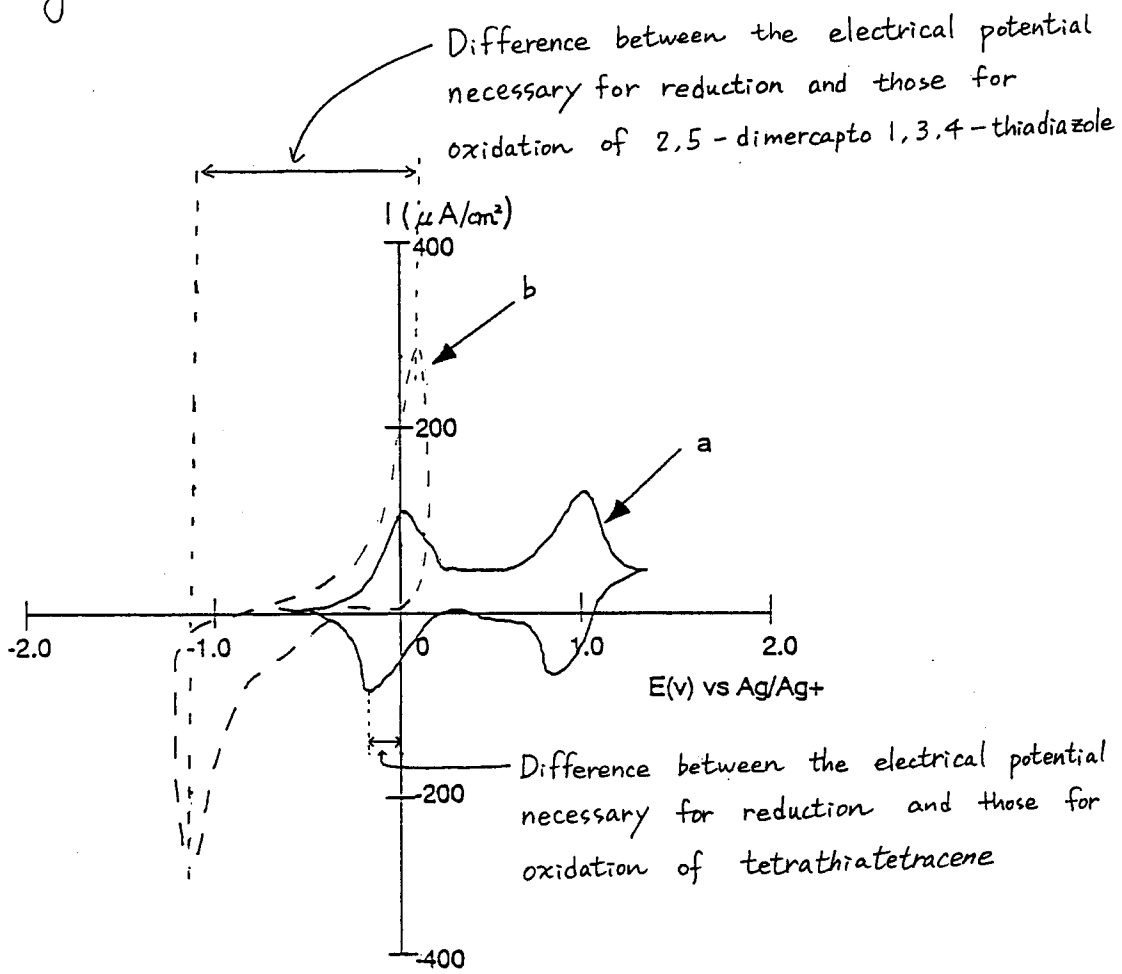 Difference between the electrical potential
necessary for reduction and those for
oxidation of 2,5-dimercapto 1,3,4-thiadiazole
I (μA/cm²)
400
b
200
a
-2.0
-1.0
0
1.0
2.0
E(v) vs Ag/Ag+
Difference between the electrical potential
necessary for reduction and those for
oxidation of tetrathiatetracene
-200
-400